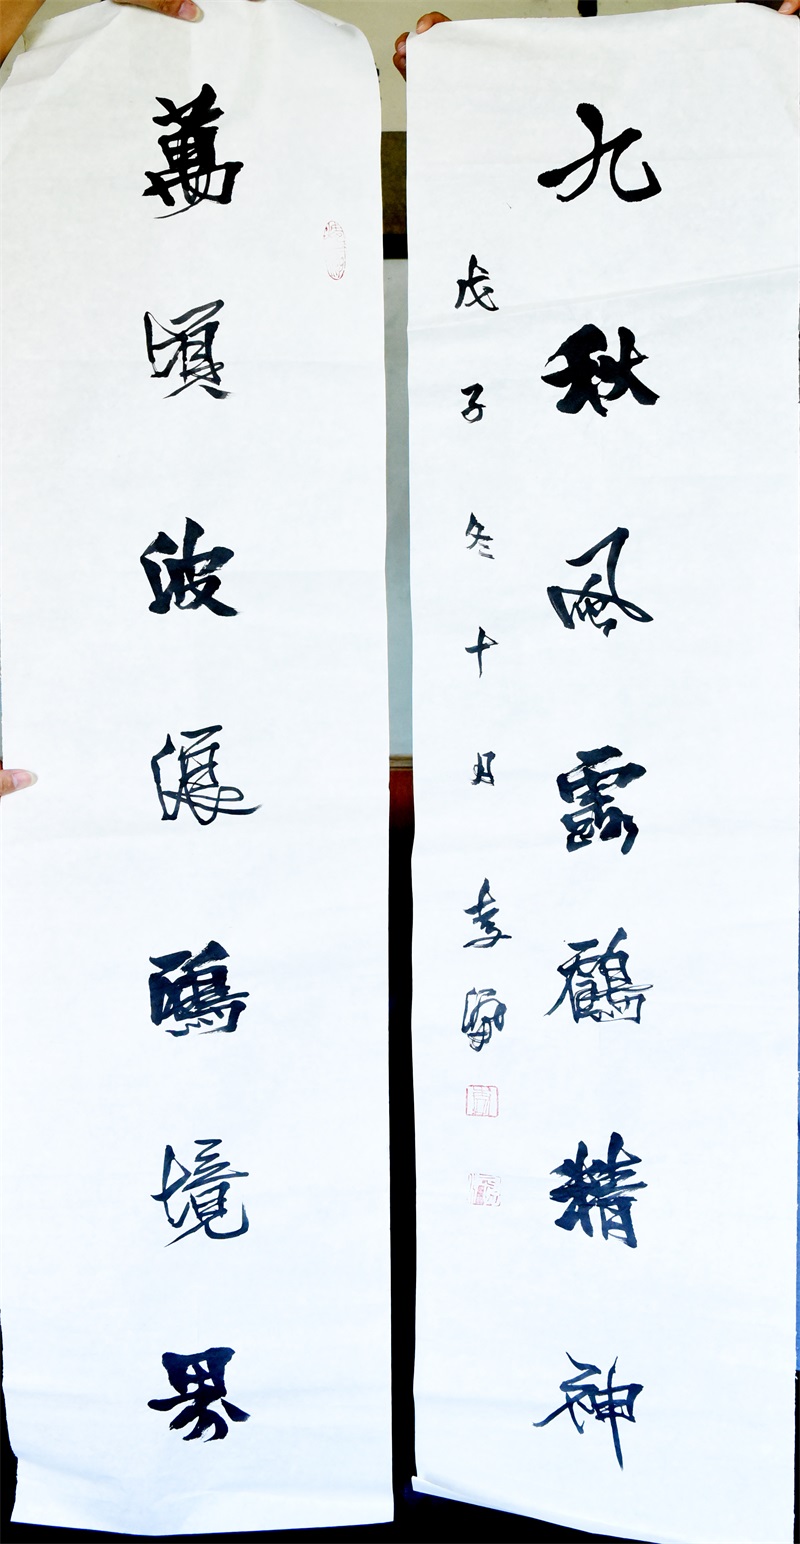 萬頃波浪鷗境界
九秋風露鶴精神
戊子冬十月 李